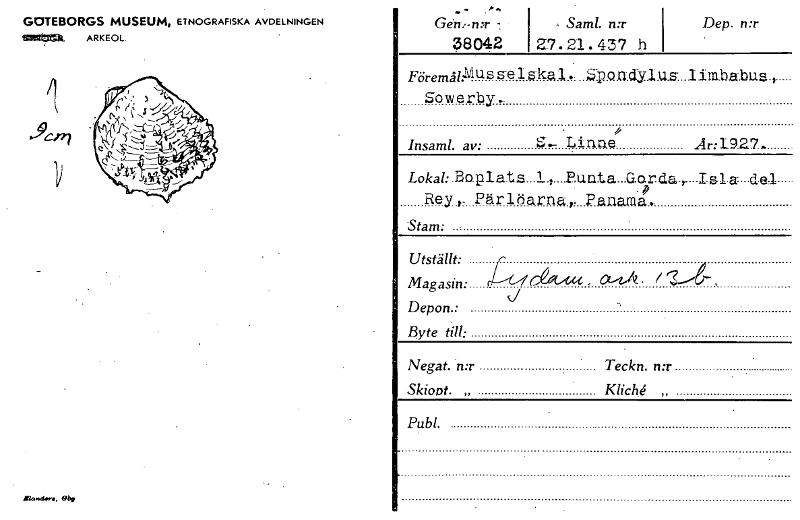 GÖTEBORGS MUSEUM, ETNOGRAFISKA AVDELNINGEN
ARKEOL.
9cm
Elanders, Gbg
Gen. n:r Saml. n:r Dep. n:r
38042 27.21.437 h
Föremål: Musselskal. Spondylus limbabus,
Sowerby.
Insaml. av: S. Linné År: 1927.
Lokal: Boplats 1, Punta Gorda, Isla del
Rey, Pärlöarna, Panamá.
Stam:
Utställt:
Magasin: Sydam. ark. 13 b.
Depon.:
Byte till:
Negat. n:r Teckn. n:r
Skiopt. „ Kliché „
Publ.